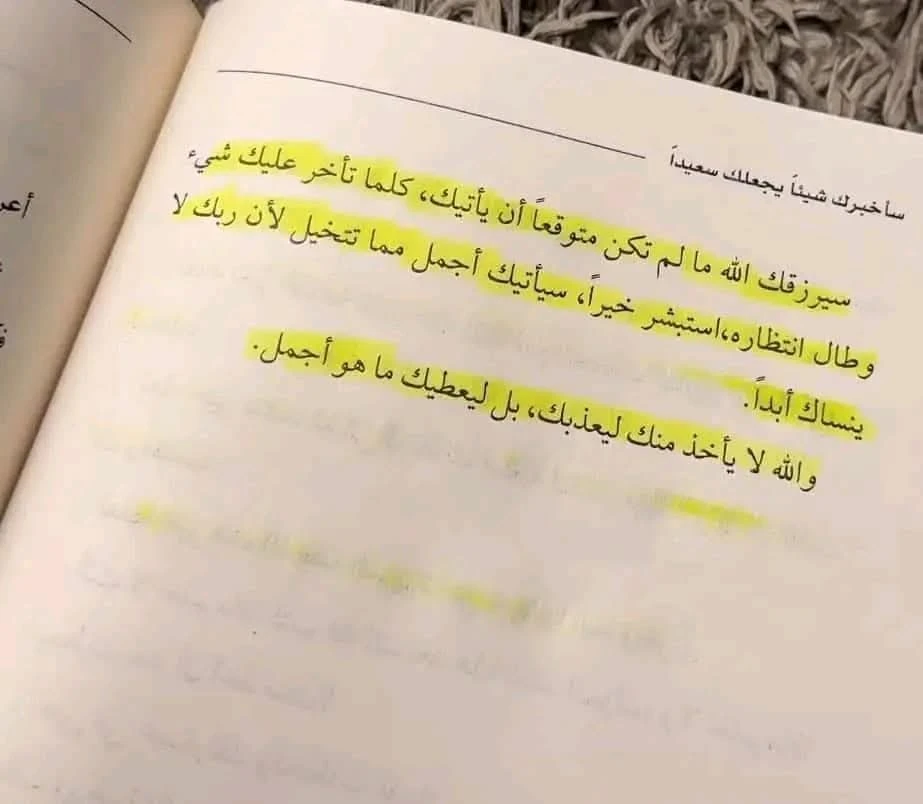 سأخبرك شيئاً يجعلك سعيداً
سيرزقك الله ما لم تكن متوقعاً أن يأتيك، كلما تأخر عليك شيء
وطال انتظاره،استبشر خيراً، سيأتيك أجمل مما تتخيل لأن ربك لا
ينساك أبداً.
والله لا يأخذ منك ليعذبك، بل ليعطيك ما هو أجمل.